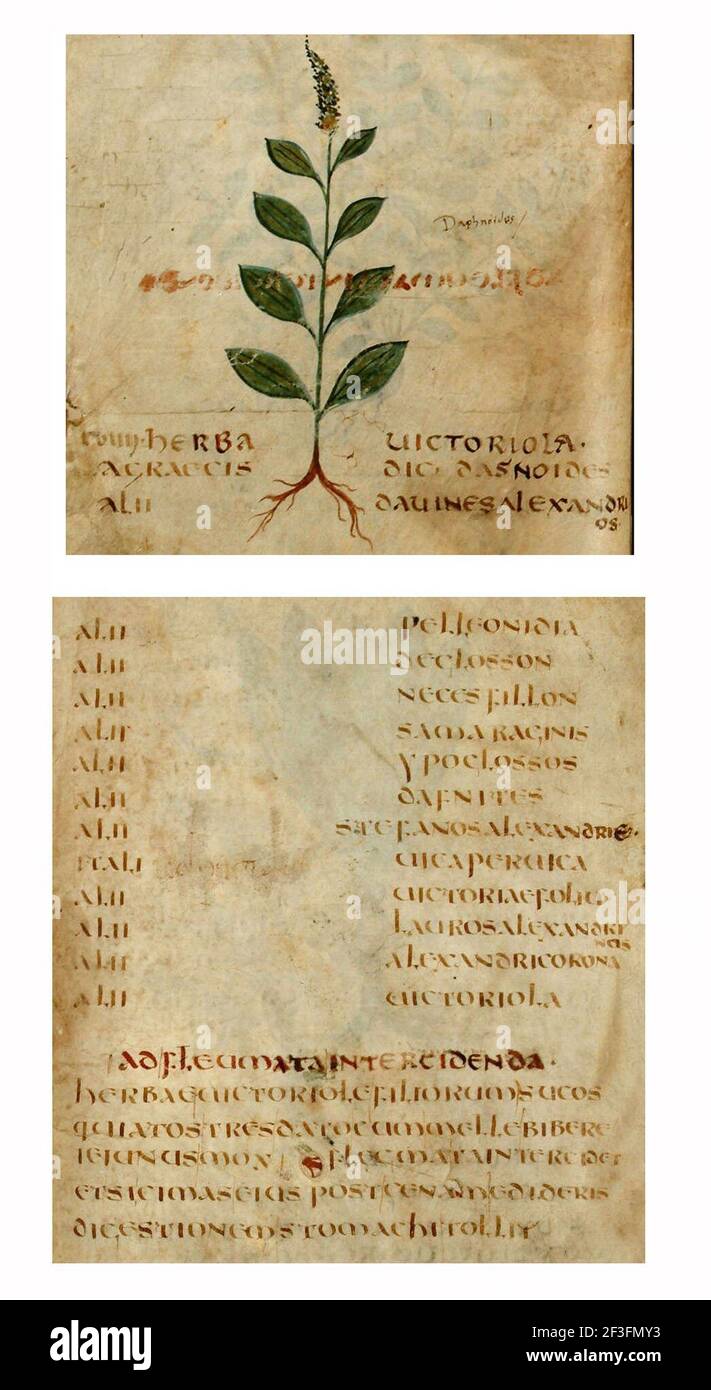 Daphnoides
HERBA UICTORIOLA·
AGRAECIS DIC· DAFNOIDES
ALII DAUINESALEXANDRI
OS·
ALII PELLEONIDIA
ALII DEGLOSSON
ALII NECESFILLON
ALII SAMARAGINIS
ALII YPOGLOSSOS
ALII DAFNITES
ALII STEFANOSALEXANDRIE·
ITALI UICAPERUICA
ALII UICTORIAEFOLIU
ALII LAUROSALEXANDRI
NUS
ALII ALEXANDRICORONA
ALII UICTORIOLA
ADFLEUMATAINTERCIDENDA·
HERBAEUICTORIOLEFILIORUMSUCOS
QUIATOSTRESDATOCUMMELLEBIBERE
IEIUNUSMOX FLEGMATAINTERCIDET
ETSICIMASEIUSPOSTCENAMEDIDERIS
DIGESTIONEMSTOMACHITOLLIT
a
alamy
alamy
Image ID: 2F3FMY3
www.alamy.com